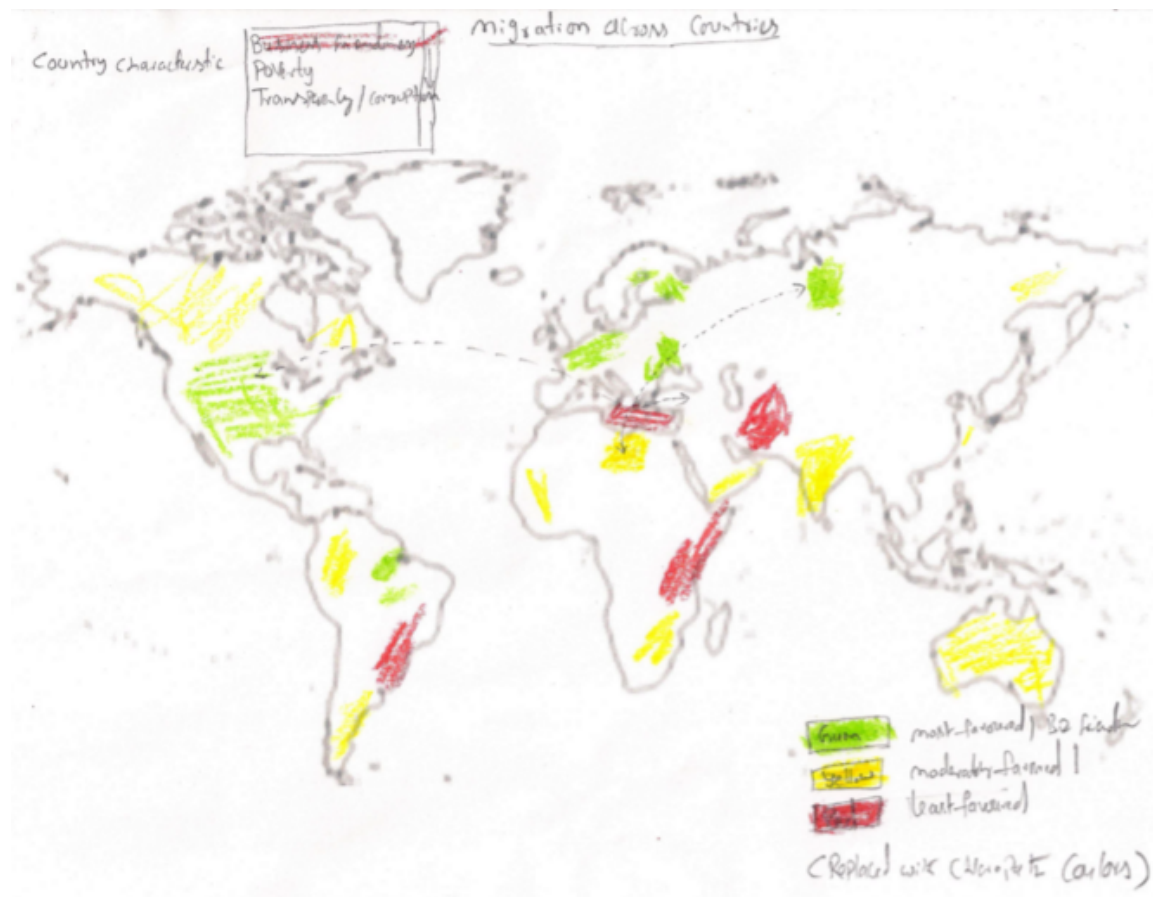 Migration across Countries
Country characteristic
Business friendliness
Poverty
Transparency / corruption
Green most-favored |
Yellow moderately-favored |
Red least-favored
(Replaced with Colors)